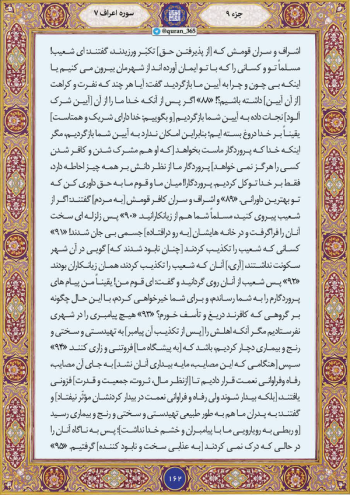 جزء ۹
@quran_365
سوره اعراف ۷
اشراف و سران قومش که [از پذیرفتن حق] تکبّر ورزیدند، گفتند: ای شعیب!
مسلماً تو و کسانی را که با تو ایمان آورده‌اند از شهرمان بیرون می کنیم یا
اینکه بی چون و چرا به آیین ما بازگردید. گفت: آیا هر چند که نفرت و کراهت
[از آن آیین] داشته باشیم؟! «۸۸» اگر پس از آنکه خدا ما را از آن [آیین شرک
آلود] نجات داده به آیین شما بازگردیم [و بگوییم: خدا دارای شریک و همتاست]
یقیناً بر خدا دروغ بسته ایم؛ بنابراین امکان ندارد به آیین شما بازگردیم، مگر
اینکه خدا که پروردگار ماست بخواهد [که او هم مشرک شدن و کافر شدن
کسی را هرگز نمی خواهد] پروردگار ما از نظر دانش بر همه چیز احاطه دارد،
فقط بر خدا توکل کردیم. پروردگارا! میان ما و قوم ما به حق داوری کن که
تو بهترین داورانی. «۸۹» و اشراف و سران کافر قومش [به مردم] گفتند: اگر از
شعیب پیروی کنید، مسلماً شما هم از زیانکارانید. «۹۰» پس زلزله ای سخت
آنان را فراگرفت و در خانه هایشان [به رو درافتاده] جسمی بی جان شدند! «۹۱»
کسانی که شعیب را تکذیب کردند [چنان نابود شدند که] گویی در آن شهر
سکونت نداشتند، [آری،] آنان که شعیب را تکذیب کردند، همان زیانکاران بودند.
«۹۲» پس شعیب از آنان روی گردانید و گفت: ای قوم من! یقیناً من پیام های
پروردگارم را به شما رساندم، و برای شما خیرخواهی کردم، با این حال چگونه
بر گروهی که کافرند دریغ و تأسف خورم؟ «۹۳» هیچ پیامبری را در شهری
نفرستادیم مگر آنکه اهلش را [پس از تکذیب آن پیامبر] به تهیدستی و سختی و
رنج و بیماری دچار کردیم، باشد که [به پیشگاه ما] فروتنی و زاری کنند. «۹۴»
سپس [هنگامی که این مصایب، مایه بیداری آنان نشد] به جای آن مصایب،
رفاه و فراوانی نعمت قرار دادیم تا [از نظر مال، ثروت، جمعیت و قدرت] فزونی
یافتند، [بلکه بیدار شوند ولی رفاه و فراوانی نعمت در بیدار کردنشان مؤثر نیفتاد] و
گفتند: به پدران ما هم به طور طبیعی تهیدستی و سختی و رنج و بیماری رسید
[و ربطی به رویارویی ما با پیامبران و خشم خدا نداشت]؛ پس به ناگاه آنان را
در حالی که درک نمی کردند [به عذابی سخت و نابود کننده] گرفتیم. «۹۵»
۱۶۲